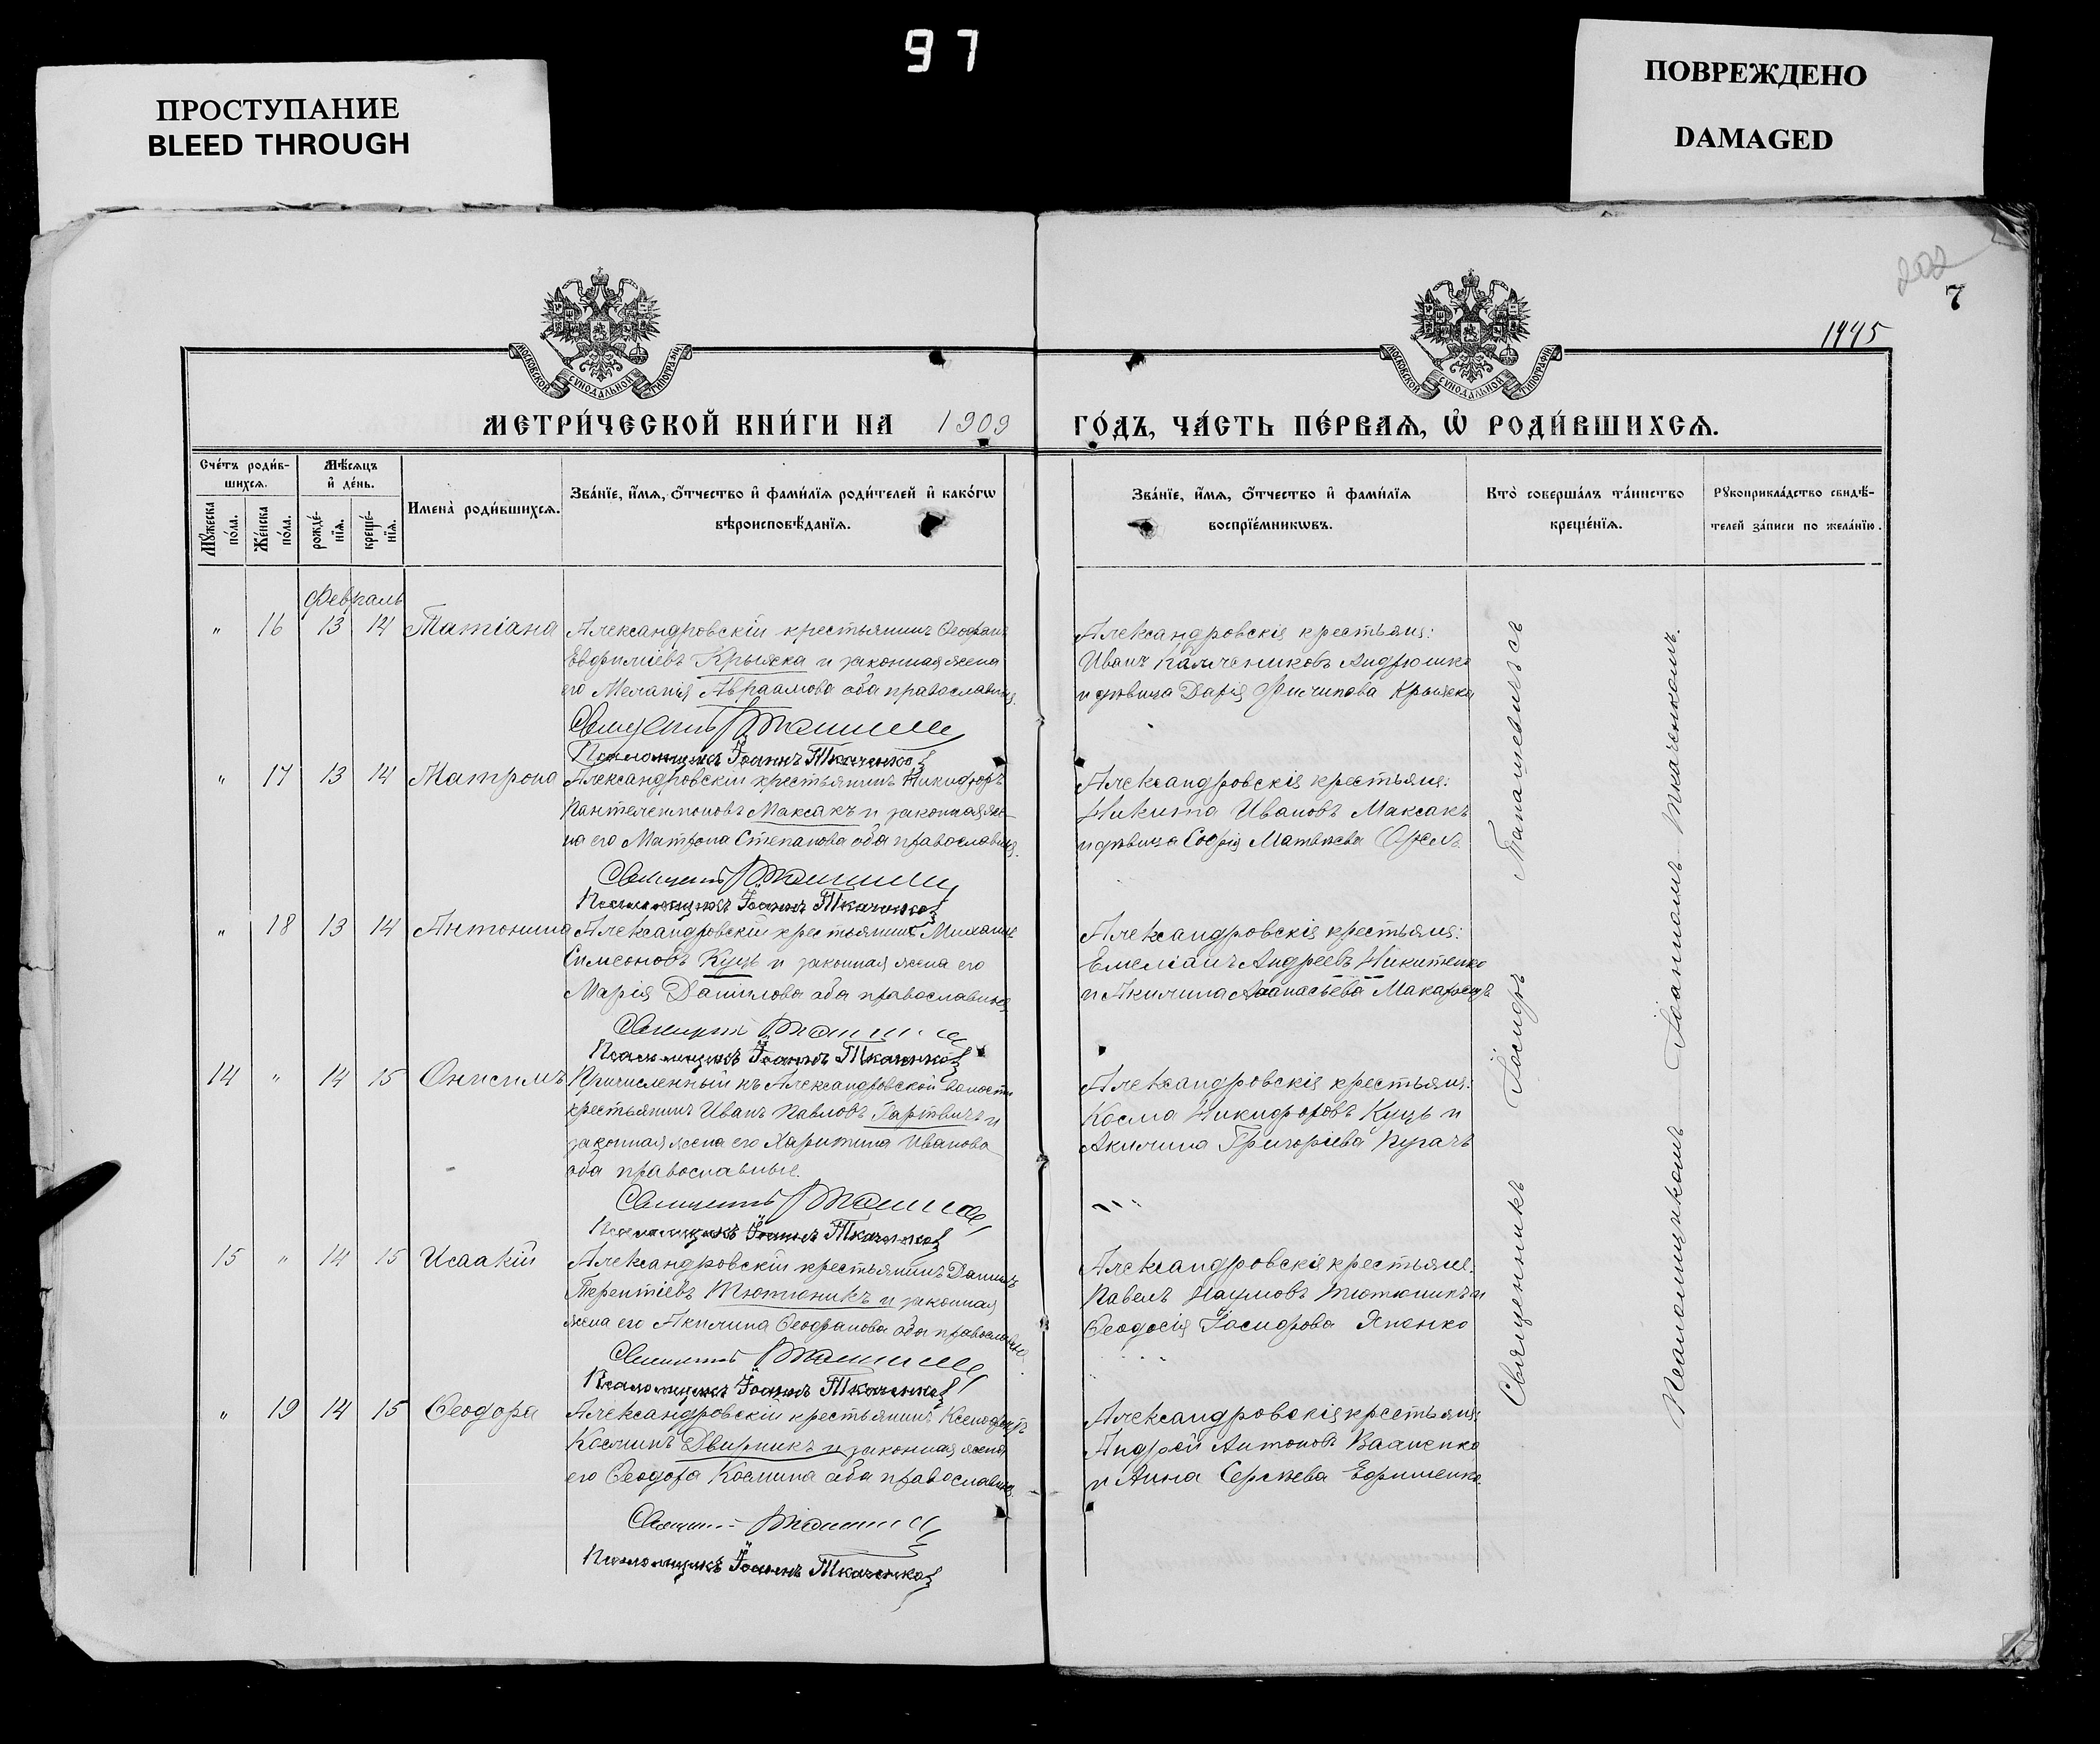 97
ПРОСТУПАНИЕ
BLEED THROUGH
ПОВРЕЖДЕНО
DAMAGED
202
7
1445
МОСКОВСКОЙ СУНОДАЛЬНОЙ ТИПОГРАФІИ
МОСКОВСКОЙ СУНОДАЛЬНОЙ ТИПОГРАФІИ
МЕТРИ́ЧЕСКОЙ КНИ́ГИ НА 1909 ГО́ДЪ, ЧА́СТЬ ПЕ́РВАѦ, Ѡ҆ РОДИ́ВШИХСѦ.
Сче́тъ роди́в-
шихсѧ.
Мѣ́сѧцъ
и҆ де́нь.
Мꙋ́жеска
по́ла.
Же́нска
по́ла.
рожде́-
нїѧ.
креще́-
нїѧ.
Имена̀ роди́вшихсѧ.
Зва́нїе, и҆́мѧ, ѻ҆́тчество и҆ фами́лїѧ роди́телей и҆ како́гѡ
вѣроисповѣ́данїѧ.
Зва́нїе, и҆́мѧ, ѻ҆́тчество и҆ фами́лїѧ
воспрїе́мникѡвъ.
Кто̀ соверша́лъ та́инство
креще́нїѧ.
Рꙋкоприкла́дство свидѣ́-
телей за́писи по жела́нїю.
Февраль
" 16 13 14 Татіана Александровскій крестьянинъ Ѳеофанъ
Евфиміевъ Крыжка и законная жена
его Меланія Авраамова оба православные.
Священникъ
Псаломщикъ Іоаннъ Ткаченко
Александровскія крестьяне:
Иванъ Андрюшко
и дѣвица Дарія Филипова Крыжка
" 17 13 14 Матрона Александровскій крестьянинъ Никифоръ
Пантелеимоновъ Максакъ и законная же-
на его Матрона Степанова оба православные.
Священникъ
Псаломщикъ Іоаннъ Ткаченко
Александровскія крестьяне:
Никита Ивановъ Максакъ
и дѣвица Софія Матвѣева Орелъ
" 18 13 14 Антонина Александровскій крестьянинъ Михаилъ
Симеоновъ Куць и законная жена его
Марія Даніилова оба православные
Священникъ
Псаломщикъ Іоаннъ Ткаченко
Александровскія крестьяне:
Емеліанъ Андреевъ Никитенко
и Акилина Аѳанасьева
14 " 14 15 Онисимъ Причисленный къ Александровской волости
крестьянинъ Иванъ Павловъ Гартвичъ и
законная жена его Харитина Иванова
оба православные.
Священникъ
Псаломщикъ Іоаннъ Ткаченко
Александровскія крестьяне:
Косма Никифоровъ Куць и
Акилина Григоріева Пугачъ
15 " 14 15 Исаакій Александровскій крестьянинъ Даніилъ
Терентіевъ Тютюникъ и законная
жена его Акилина Ѳеофанова оба православные.
Священникъ
Псаломщикъ Іоаннъ Ткаченко
Александровскія крестьяне:
Павелъ Наумовъ Тютюникъ и
Ѳеодосія Іосифова Япенко
" 19 14 15 Ѳеодора Александровскій крестьянинъ Ксенофонтъ
Косминъ Двирникъ и законная жена
его Ѳеодора Космина оба православные.
Священникъ
Псаломщикъ Іоаннъ Ткаченко
Александровскія крестьяне:
Андрей Антоновъ Ващенко
и Анна Сергѣева Ефименко.
Священникъ Іосифъ
Псаломщикомъ Іоанномъ Ткаченкомъ.